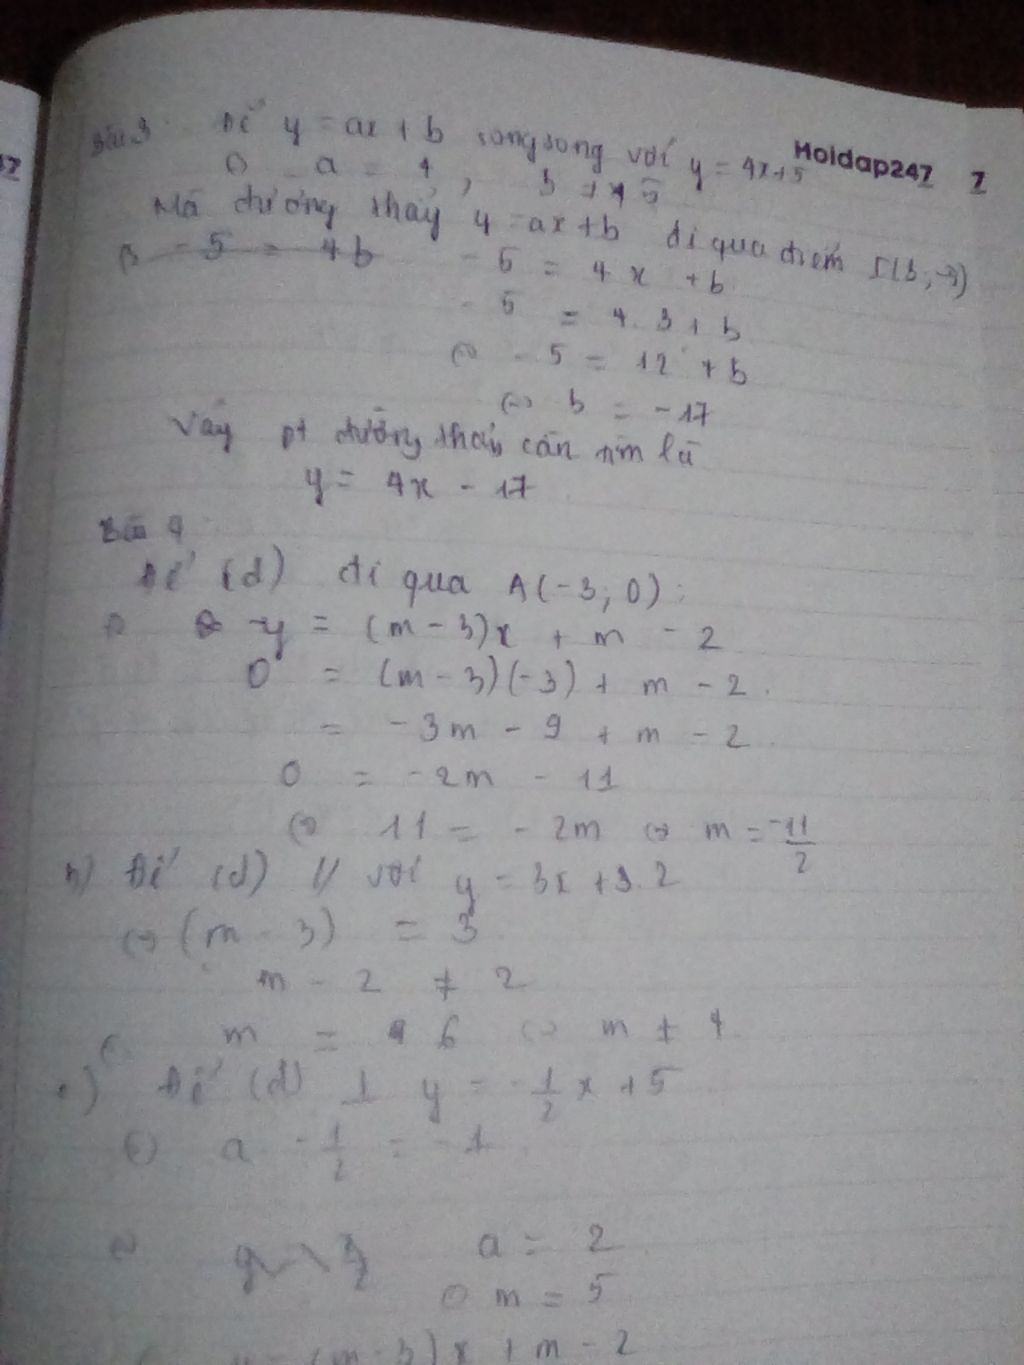 Bài 3 Để y = ax + b song song với y = 4x+5
Hoidap247
a = 4, b ≠ 5
Mà đường thẳng y = ax + b đi qua điểm
- 5 = 4b - 5 = 4x + b
- 5 = 4.3 + b
(=) - 5 = 12 + b
(=) b = -17
Vậy pt đường thẳng cần tìm là
y = 4x - 17
Bài 4
Để (d) đi qua A(-3; 0):
y = (m - 3)x + m - 2
0 = (m - 3)(-3) + m - 2.
= -3m - 9 + m - 2
0 = -2m - 11
(=) 11 = - 2m (=) m = -11/2
b) Để (d) // với y = 3x + 2
(=) (m - 3) = 3
m - 2 ≠ 2
m = 6 (=) m ≠ 4
c) Để (d) ⊥ y = -1/2 x + 5
(=) a . -1/2 = -1
(=) a = 2
m = 5
y = (m - 3)x + m - 2